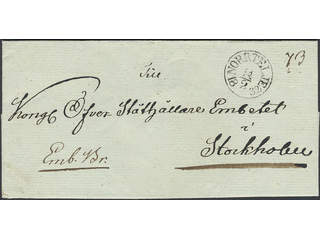 NORRTELJE
73
Till
Kongl Öfver Ståthållare Embetet
i
Stockholm
Emb. Br.